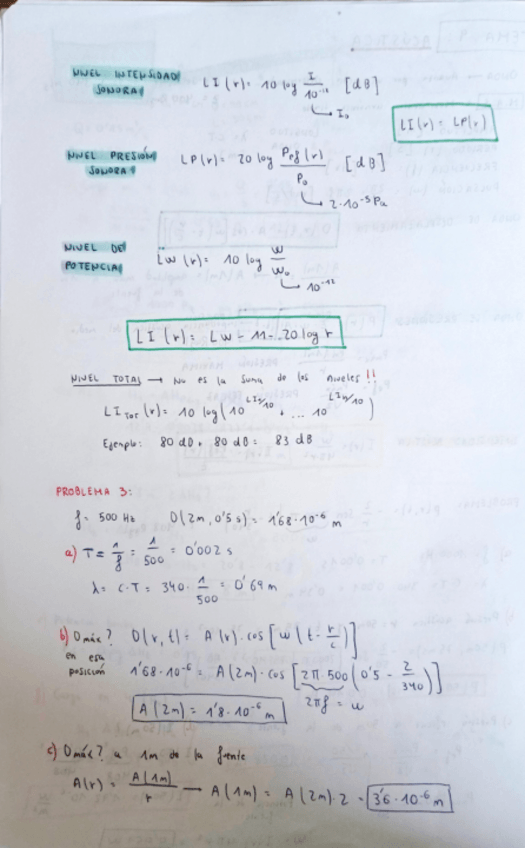 NIVEL INTENSIDAD SONORA
LI(r) = 10 log I / 10⁻¹² [dB]
↳ I₀
LI(r) = LP(r)
NIVEL PRESIÓN SONORA
LP(r) = 20 log Pef(r) / P₀ [dB]
↳ 2·10⁻⁵ Pa
NIVEL DE POTENCIA
Lw(r) = 10 log W / W₀
↳ 10⁻¹²
LI(r) = Lw - 11 - 20 log r
NIVEL TOTAL → No es la suma de los niveles!!
LI TOT (r) = 10 log(10^LI1/10 + ... 10^LIn/10)
Ejemplo: 80 dB + 80 dB = 83 dB
PROBLEMA 3:
f = 500 Hz D(2m, 0'5s) = 1'68·10⁻⁶ m
a) T = 1/f = 1/500 = 0'002 s
λ = c·T = 340 · 1/500 = 0'69 m
b) Dmáx? D(r,t) = A(r)·cos[w(t - r/c)]
en esa
posición 1'68·10⁻⁶ = A(2m)·cos[2π·500(0'5 - 2/340)]
2πf = w
A(2m) = 1'8·10⁻⁶ m
c) Dmáx? a 1m de la fuente
A(r) = A(1m)/r → A(1m) = A(2m)·2 = 3'6·10⁻⁶ m